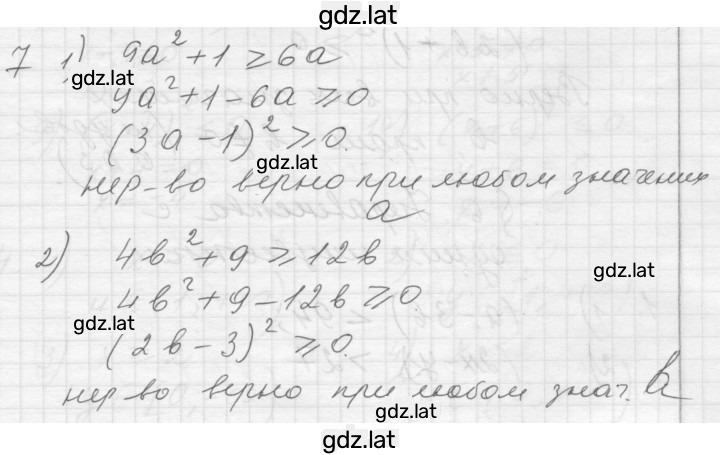 gdz.lat
7 1) 9a² + 1 ≥ 6a
gdz.lat
9a² + 1 - 6a ≥ 0
(3a - 1)² ≥ 0.
gdz.lat
нер-во верно при любом значениях
a
2) 4b² + 9 ≥ 12b
gdz.lat
4b² + 9 - 12b ≥ 0
gdz.lat
(2b - 3)² ≥ 0.
нер-во верно при любом знач. b
gdz.lat
gdz.lat